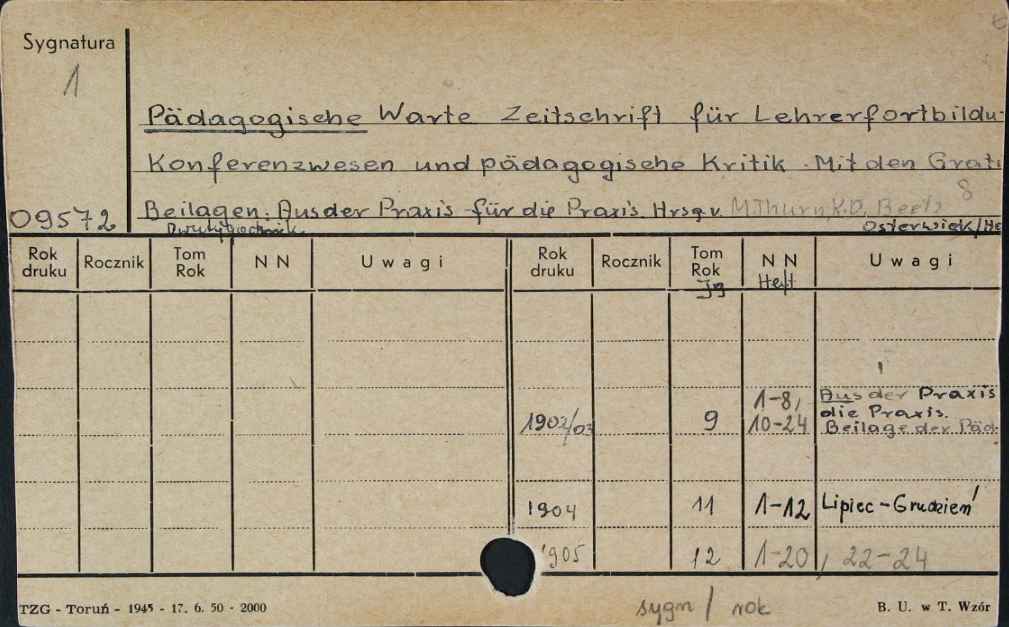 Sygnatura
1
Pädagogische Warte Zeitschrift für Lehrerfortbildu-
Konferenzwesen und pädagogische Kritik. Mit den Grat
Beilagen: Aus der Praxis - für die Praxis. Hrsg. v. M. Thurn, K.O. Beetz 8
09572
Osterwiek/Ha
Rok druku Rocznik Tom Rok N N Uwagi Rok druku Rocznik Tom Rok N N Uwagi
Jg Heft
1902/03 9 1-8, 10-24 Aus der Praxis
die Praxis.
Beilage der Päd.
1904 11 1-12 Lipiec-Grudzień
1905 12 1-20, 22-24
sygn / rok
TZG - Toruń - 1945 - 17. 6. 50 - 2000 B. U. w T. Wzór